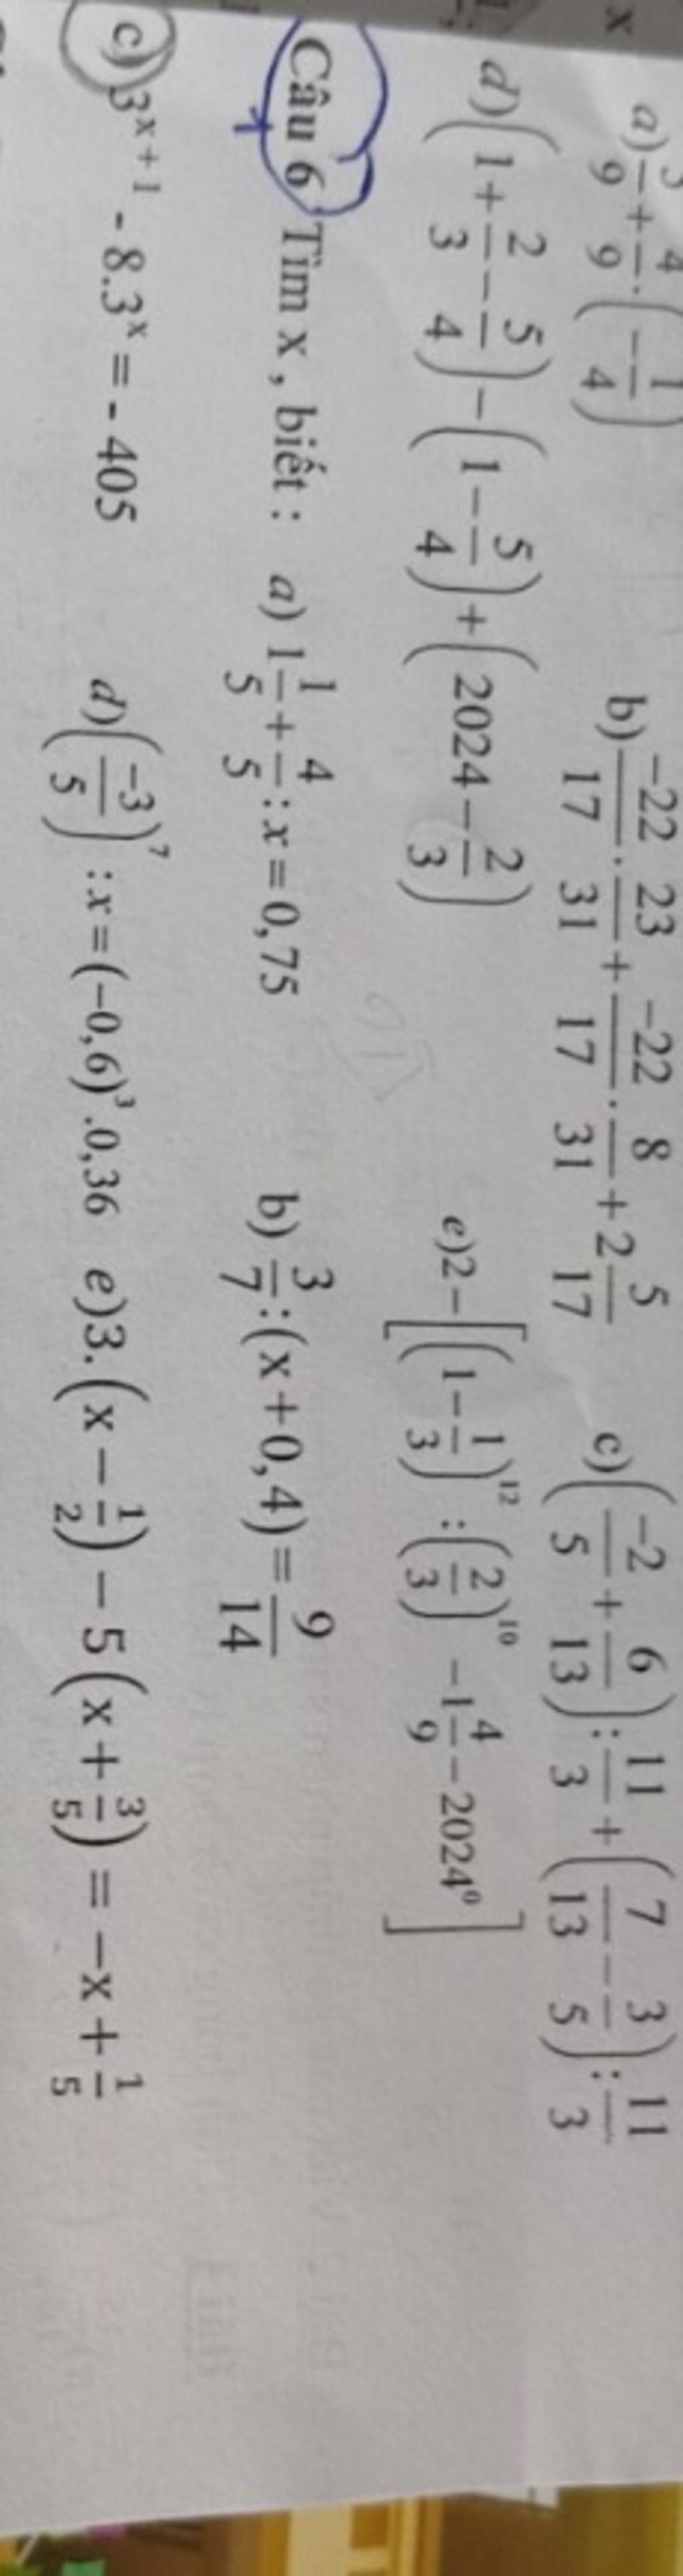 x
a) 3/9 + 4/9 . (-1/4) b) -22/17 . 23/31 + -22/17 . 8/31 + 2 5/17 c) (-2/5 + 6/13) : 11/3 + (7/13 - 3/5) : 11/3
d) (1 + 2/3 - 5/4) - (1 - 5/4) + (2024 - 2/3) e) 2 - [(1 - 1/3)¹² : (2/3)¹⁰ - 1 4/9 - 2024⁰]
Câu 6 Tìm x , biết : a) 1 1/5 + 4/5 : x = 0,75 b) 3/7 : (x + 0,4) = 9/14
c) 3ˣ⁺¹ - 8.3ˣ = - 405 d) (-3/5)⁷ : x = (-0,6)³ .0,36 e) 3.(x - 1/2) - 5(x + 3/5) = -x + 1/5